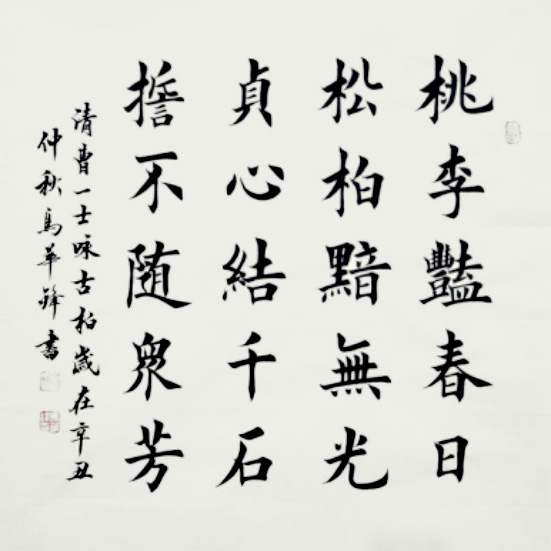 桃李豔春日
松柏黯無光
貞心結千石
誓不随衆芳
清曹一士咏古柏歲在辛丑
仲秋馬華鋒書